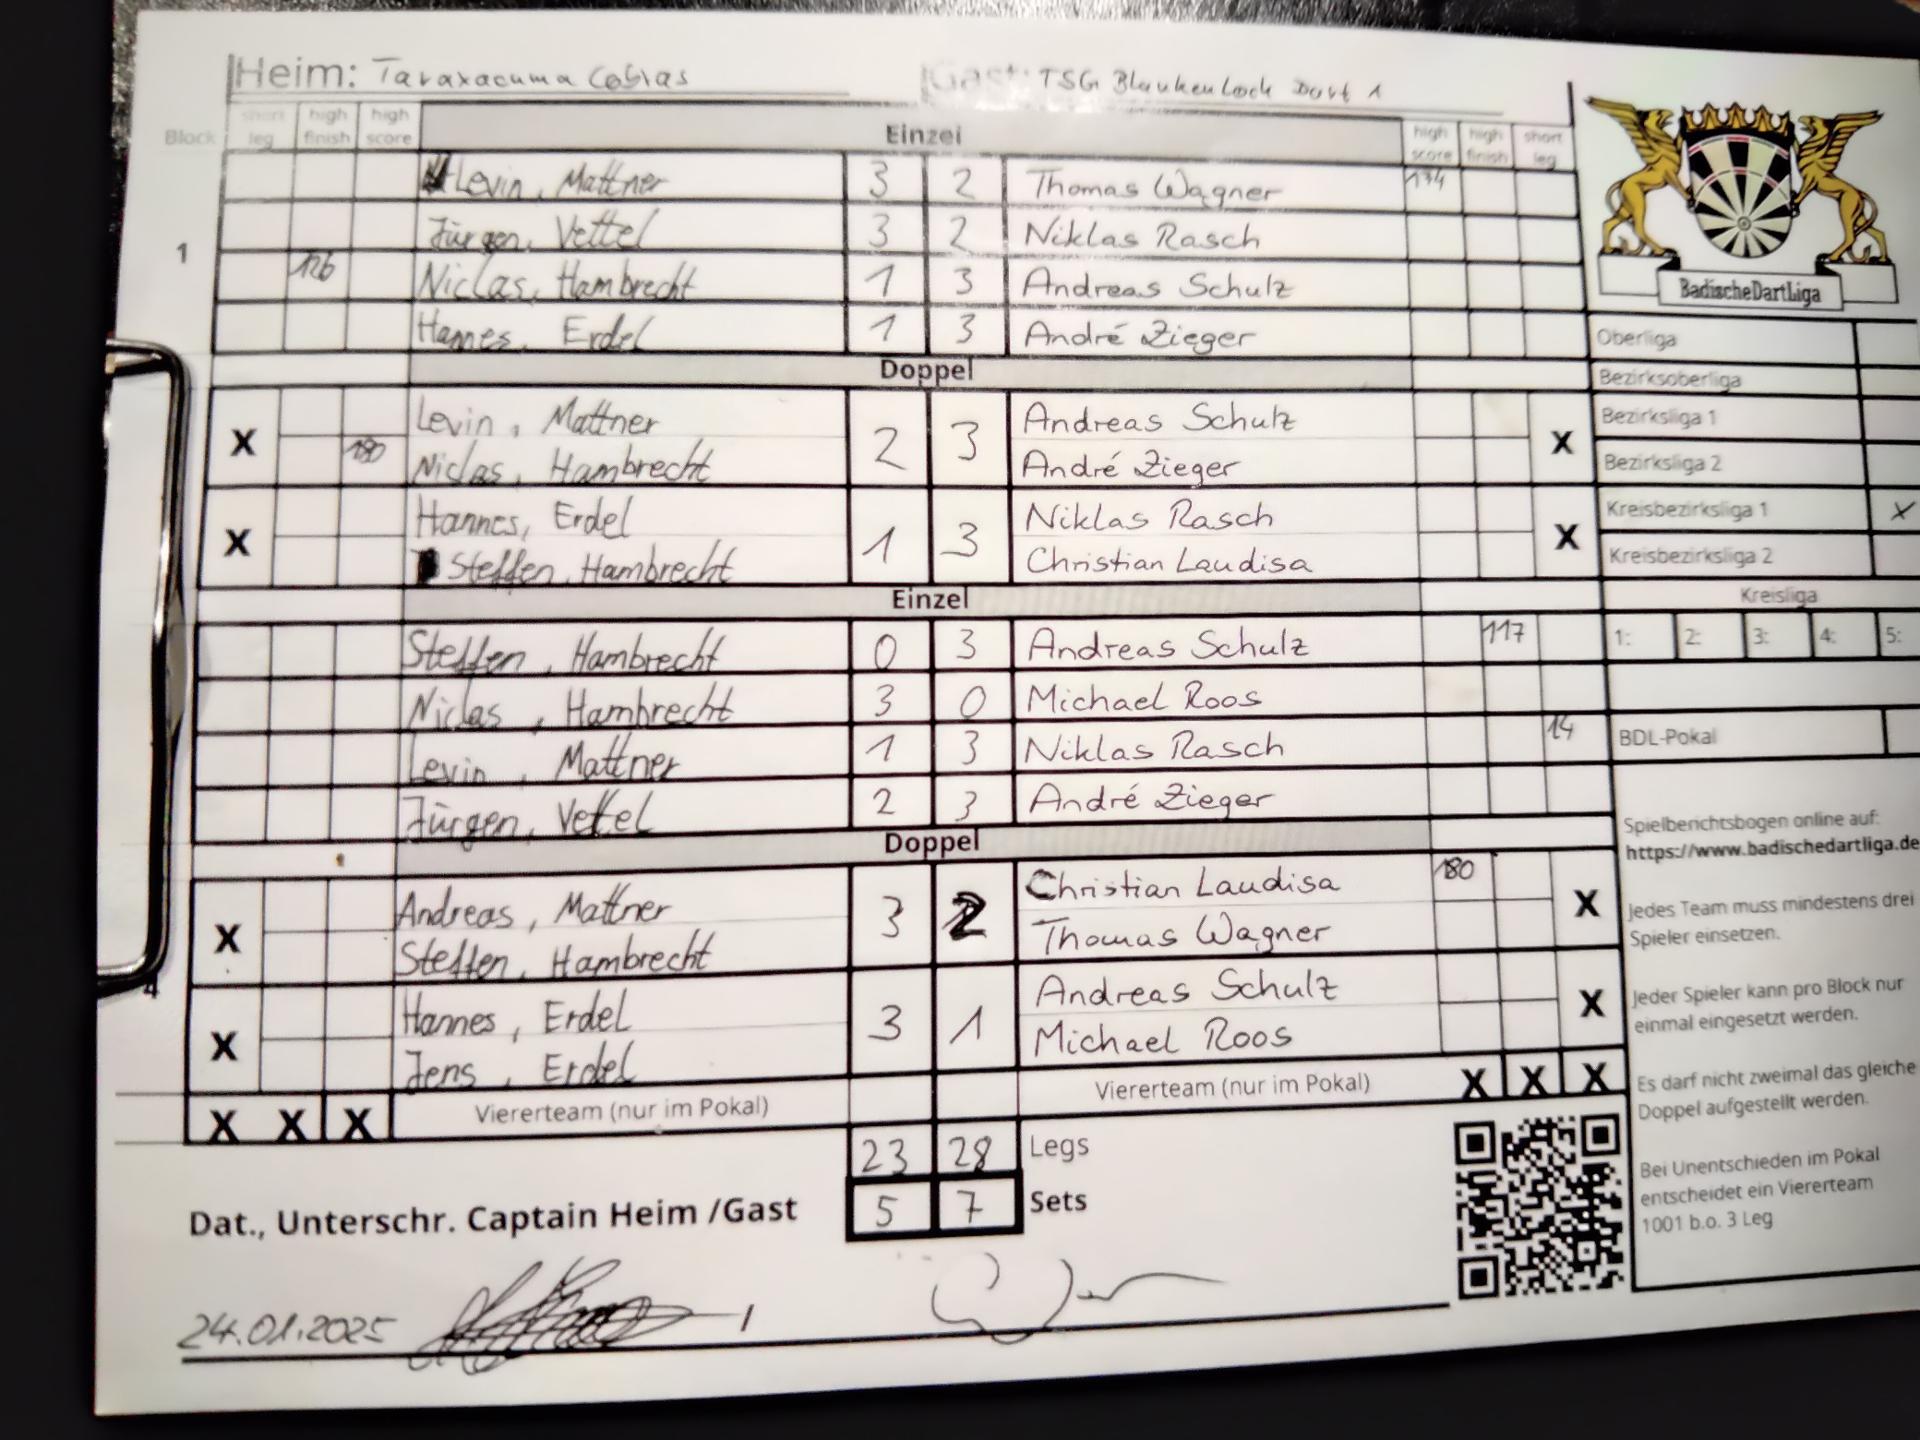 Heim: Taraxacuma Cobras Gast: TSG Blankenloch Dart 1
Block short leg high finish high score Einzel high score high finish short leg
Levin, Mattner 3 2 Thomas Wagner 174
Jürgen, Vettel 3 2 Niklas Rasch
1
126 Niclas, Hambrecht 1 3 Andreas Schulz
Hannes, Erdel 1 3 André Zieger
Doppel
X Levin, Mattner 2 3 Andreas Schulz X
180 Niclas, Hambrecht André Zieger
X Hannes, Erdel 1 3 Niklas Rasch X
Steffen, Hambrecht Christian Laudisa
Einzel
Steffen, Hambrecht 0 3 Andreas Schulz 117
Niclas, Hambrecht 3 0 Michael Roos
Levin, Mattner 1 3 Niklas Rasch 14
Jürgen, Vettel 2 3 André Zieger
Doppel
X Andreas, Mattner 3 2 Christian Laudisa 180 X
Steffen, Hambrecht Thomas Wagner
4
X Hannes, Erdel 3 1 Andreas Schulz X
Jens, Erdel Michael Roos
X X X Viererteam (nur im Pokal) Viererteam (nur im Pokal) X X X
23 28 Legs
5 7 Sets
Dat., Unterschr. Captain Heim /Gast
24.01.2025 /
BadischeDartLiga
Oberliga
Bezirksoberliga
Bezirksliga 1
Bezirksliga 2
Kreisbezirksliga 1 X
Kreisbezirksliga 2
Kreisliga
1: 2: 3: 4: 5:
BDL-Pokal
Spielberichtsbogen online auf:
https://www.badischedartliga.de
Jedes Team muss mindestens drei
Spieler einsetzen.
Jeder Spieler kann pro Block nur
einmal eingesetzt werden.
Es darf nicht zweimal das gleiche
Doppel aufgestellt werden.
Bei Unentschieden im Pokal
entscheidet ein Viererteam
1001 b.o. 3 Leg